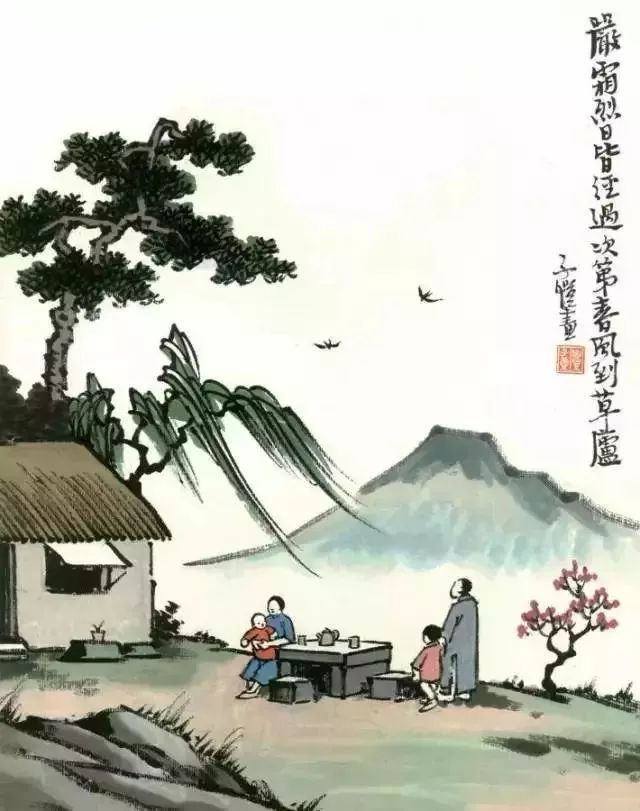 嚴霜烈日皆經過次第春風到草廬
子愷畫